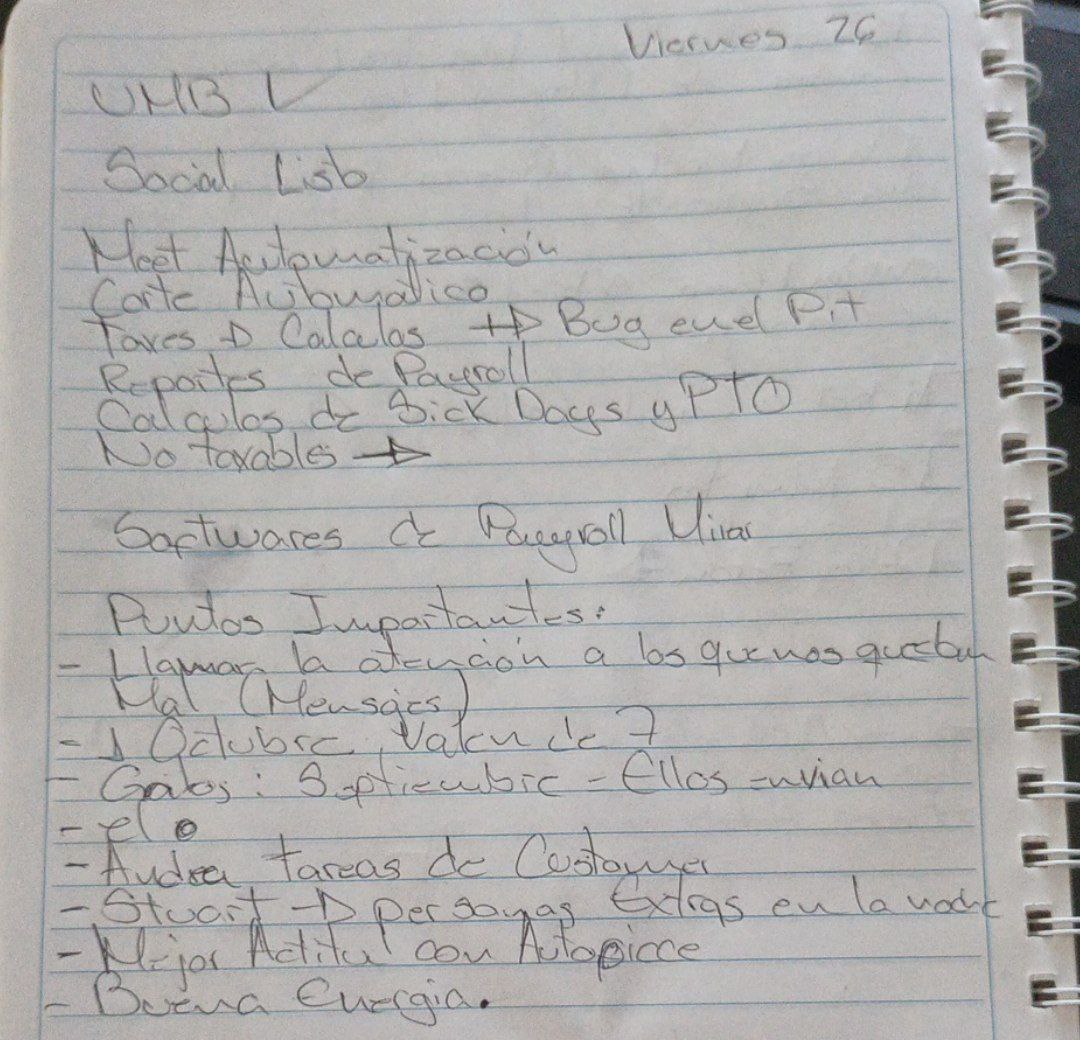 Viernes 26
UMB L
Social Listo
Meet Automatización
Corte Automatico
Taxes → Calculos → Bug en el Pit
Reportes de Payroll
Calculos de Sick Days y PTO
No taxables →
Softwares de Payyroll Mirar
Puntos Importantes:
- Llamar la atención a los que nos quedan
Mal (Mensajes)
- 1 Octubre, Valen de 7
- Septiembre = Ellos envian
- el
- Andrea tareas de Customer
- Stuart → personas Extras en la noche
- Mejor Actitud con
- Buena Energia.